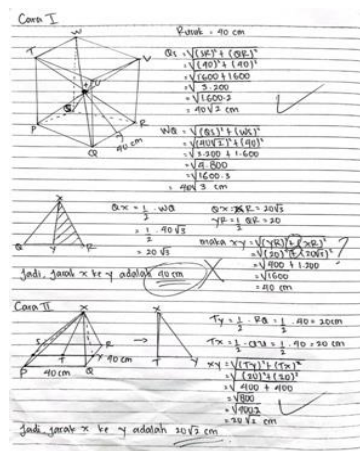 Cara I
Rusuk = 40 cm
W
T
U
V
X
S
P
R
Q
40 cm
QS = √(SR)² + (QR)²
= √(40)² + (40)²
= √1600 + 1600
= √3.200
= √1.600.2
= 40√2 cm
WQ = √(QS)² + (WS)²
= √(40√2)² + (40)²
= √3.200 + 1.600
= √4.800
= √1600.3
= 40√3 cm
X
Q Y R
QX = 1/2 . WQ
= 1/2 . 40√3
= 20√3
QX = XR = 20√3
YR = 1/2 QR = 20
maka xy = √(YR)² + (XR)²
= √(20)² + (20√3)²
= √400 + 1.200
= √1600
= 40 cm
?
Jadi, jarak x ke y adalah 40 cm
Cara II
X
S
R
P
T
Q
Y
40 cm
40 cm
X
T
Y
Ty = 1/2 . PQ = 1/2 . 40 = 20 cm
= 1/2 . 40 = 20 cm
xy = √(Ty)² + (Tx)²
= √(20)² + (20)²
= √400 + 400
= √800
= √400.2
= 20√2 cm
Jadi, jarak x ke y adalah 20√2 cm